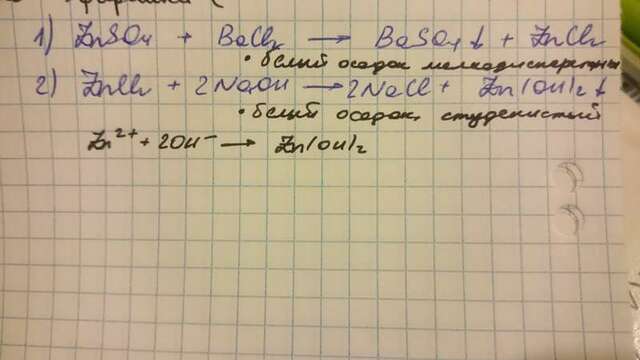 1) ZnSO4 + BaCl2 → BaSO4↓ + ZnCl2
• белый осадок мелкодисперсный
2) ZnCl2 + 2NaOH → 2NaCl + Zn(OH)2↓
• белый осадок, студенистый
Zn²⁺ + 2OH⁻ → Zn(OH)2